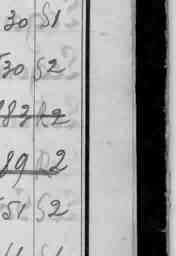 30 S1
30 S2
83 R2
89 R2
51 S2